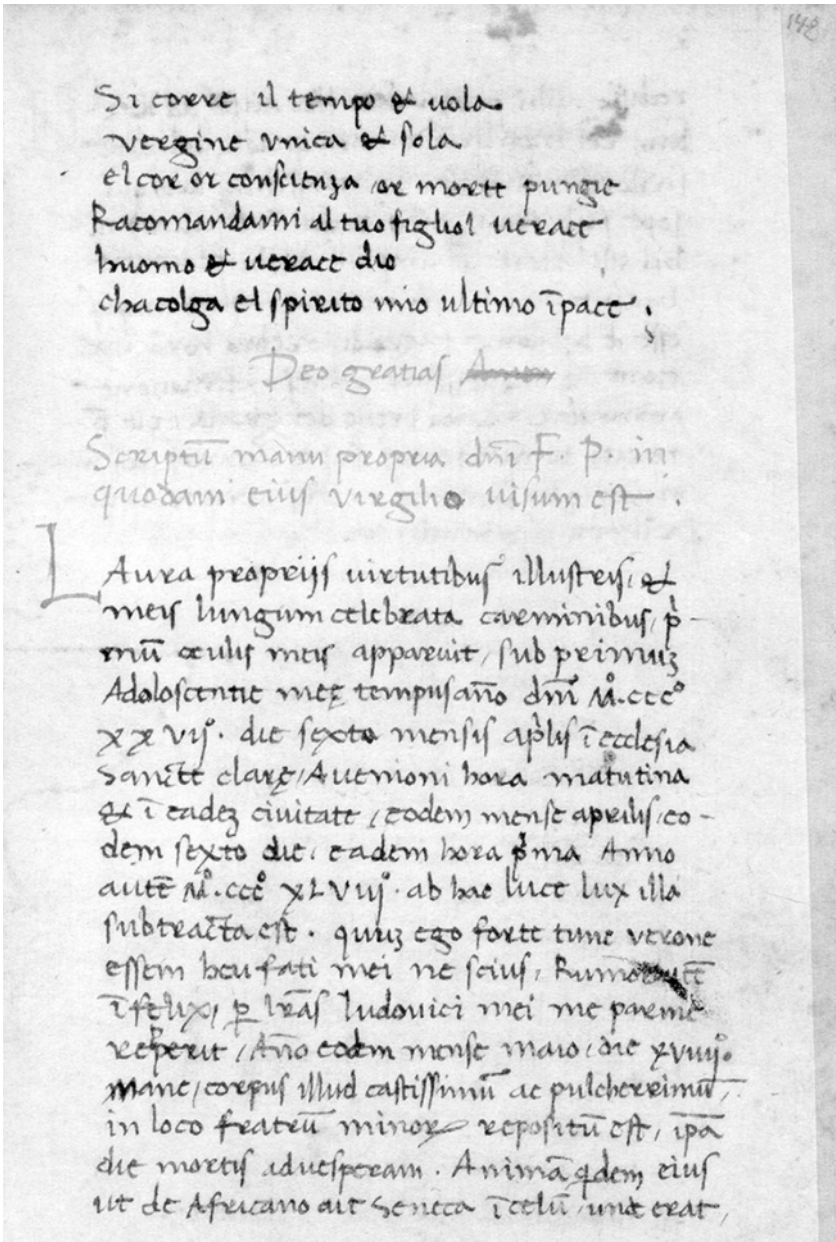 148
Si corre il tempo & uola.
vergine vnica & sola
el cor or conscienza or morte pungie
Racomandami al tuo figliol uerace
huomo & uerace dio
chacolga el spirito mio ultimo īpace.
Deo gratias Amen
Scriptū manu propria dn̄i F P. in
quodam eius virgilio uisum est.
LAura proprijs uirtutibus illustris, &
meis lungum celebrata carminibus, p̓-
mū oculis meis apparuit, sub primuꝫ
Adoloscentie meę tempus añо dn̄i M̊.ccc̊
xxvij̊. die sexto mensis ap̓lis ī ecclesia
Sancte clarę, Auenioni hora matutina
& ī eadeꝫ ciuitate, eodem mense aprilis, eo-
dem sexto die, eadem hora p̓ma Anno
autē M̊.ccc̊ xLviij̊. ab hac luce lux illa
subtracta est. quuꝫ ego forte tunc verone
essem heu fati mei nescius, Rumor autē
īfelix, ꝑ lr̄as ludouici mei me parme
reperit, Año eodem mense maio, die xviiij̊.
mane, corpus illud castissimū ac pulcherrimū,
in loco fratrū minoꝝ repositū est, ip̄a
die mortis aduesperam. Animā q̓dem eius
ut de Africano ait Seneca ī celū, unde erat,